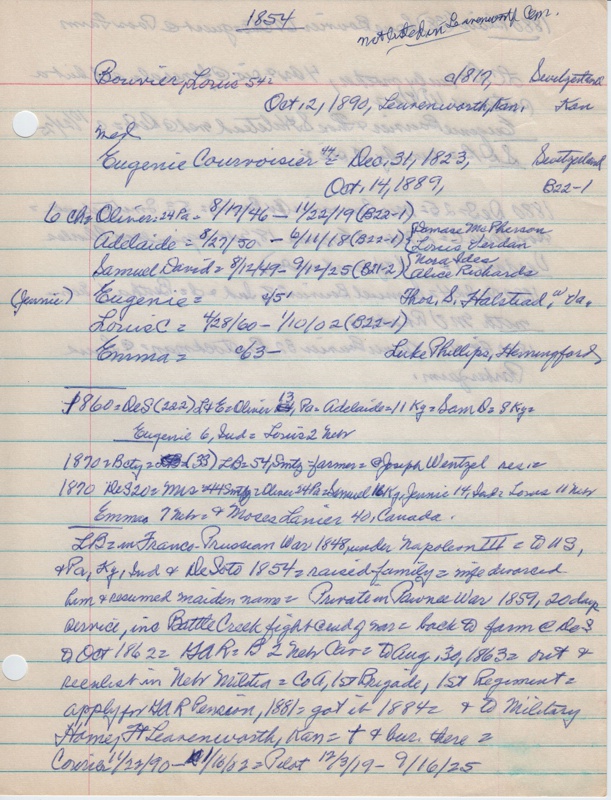 1854
not listed in Leavenworth Cem.
Bouvier, Louis 54 = c/1817, Switzerland
Oct. 2, 1890, Leavenworth, Kan. Kan
med
Eugenie Courvoisier 44 = Dec. 31, 1823, Switzerland
Oct. 14, 1889, B22-1
6 ch = Oliver: 24 Pa = 8/17/46 - 11/22/19 (B22-1)
Adelaide = 8/27/50 - 6/11/18 (B22-1) { Demase McPherson
Louis Jerdan
Samuel David = 8/12/49 - 9/12/25 (B21-2) { Nora Ides
Alice Richards
(Jennie) Eugenie = c/51 Thos, S. Halstead, Va.
Louis C = 4/28/60 - 1/10/02 (B22-1)
Emma = c/63 - Luke Phillips, Hemingford
1860 = DeS (222) L & E = Oliver 13, Pa = Adelaide = 11 Ky = Sam D = 8 Ky =
Eugenie 6, Ind = Louis 2 Nebr
1870 = Bcty = (33) LB = 54, Smtz = farmer = @ Joseph Wentzel res. =
1870 DeS 20 = Mrs 44 Smtz = Oliver 24 Pa = Samuel 16 Ky, Jennie 14, Ind = Louis 11 Nebr
Emma 7 Nebr = & Moses Lanier 40, Canada.
LB = in Franco-Prussian War 1848, under Napoleon III = to US,
& Pa, Ky, Ind & DeSoto 1854 = raised family = wife divorced
him & resumed maiden name = Private in Pawnee War 1859, 20 days
service, inc Battle Creek fight & end of war = back to farm @ DeS
to Oct 1862 = GAR = B 2 Nebr Cav = to Aug. 30, 1863 = out &
reenlist in Nebr Militia = Co A, 1st Brigade, 1st Regiment =
apply for GAR Pension, 1881 = got it 1884 = & to Military
Home, Ft Leavenworth, Kan = † & bur. there =
Courier 11/22/90 - 1/16/02 = Pilot 12/3/19 - 9/16/25